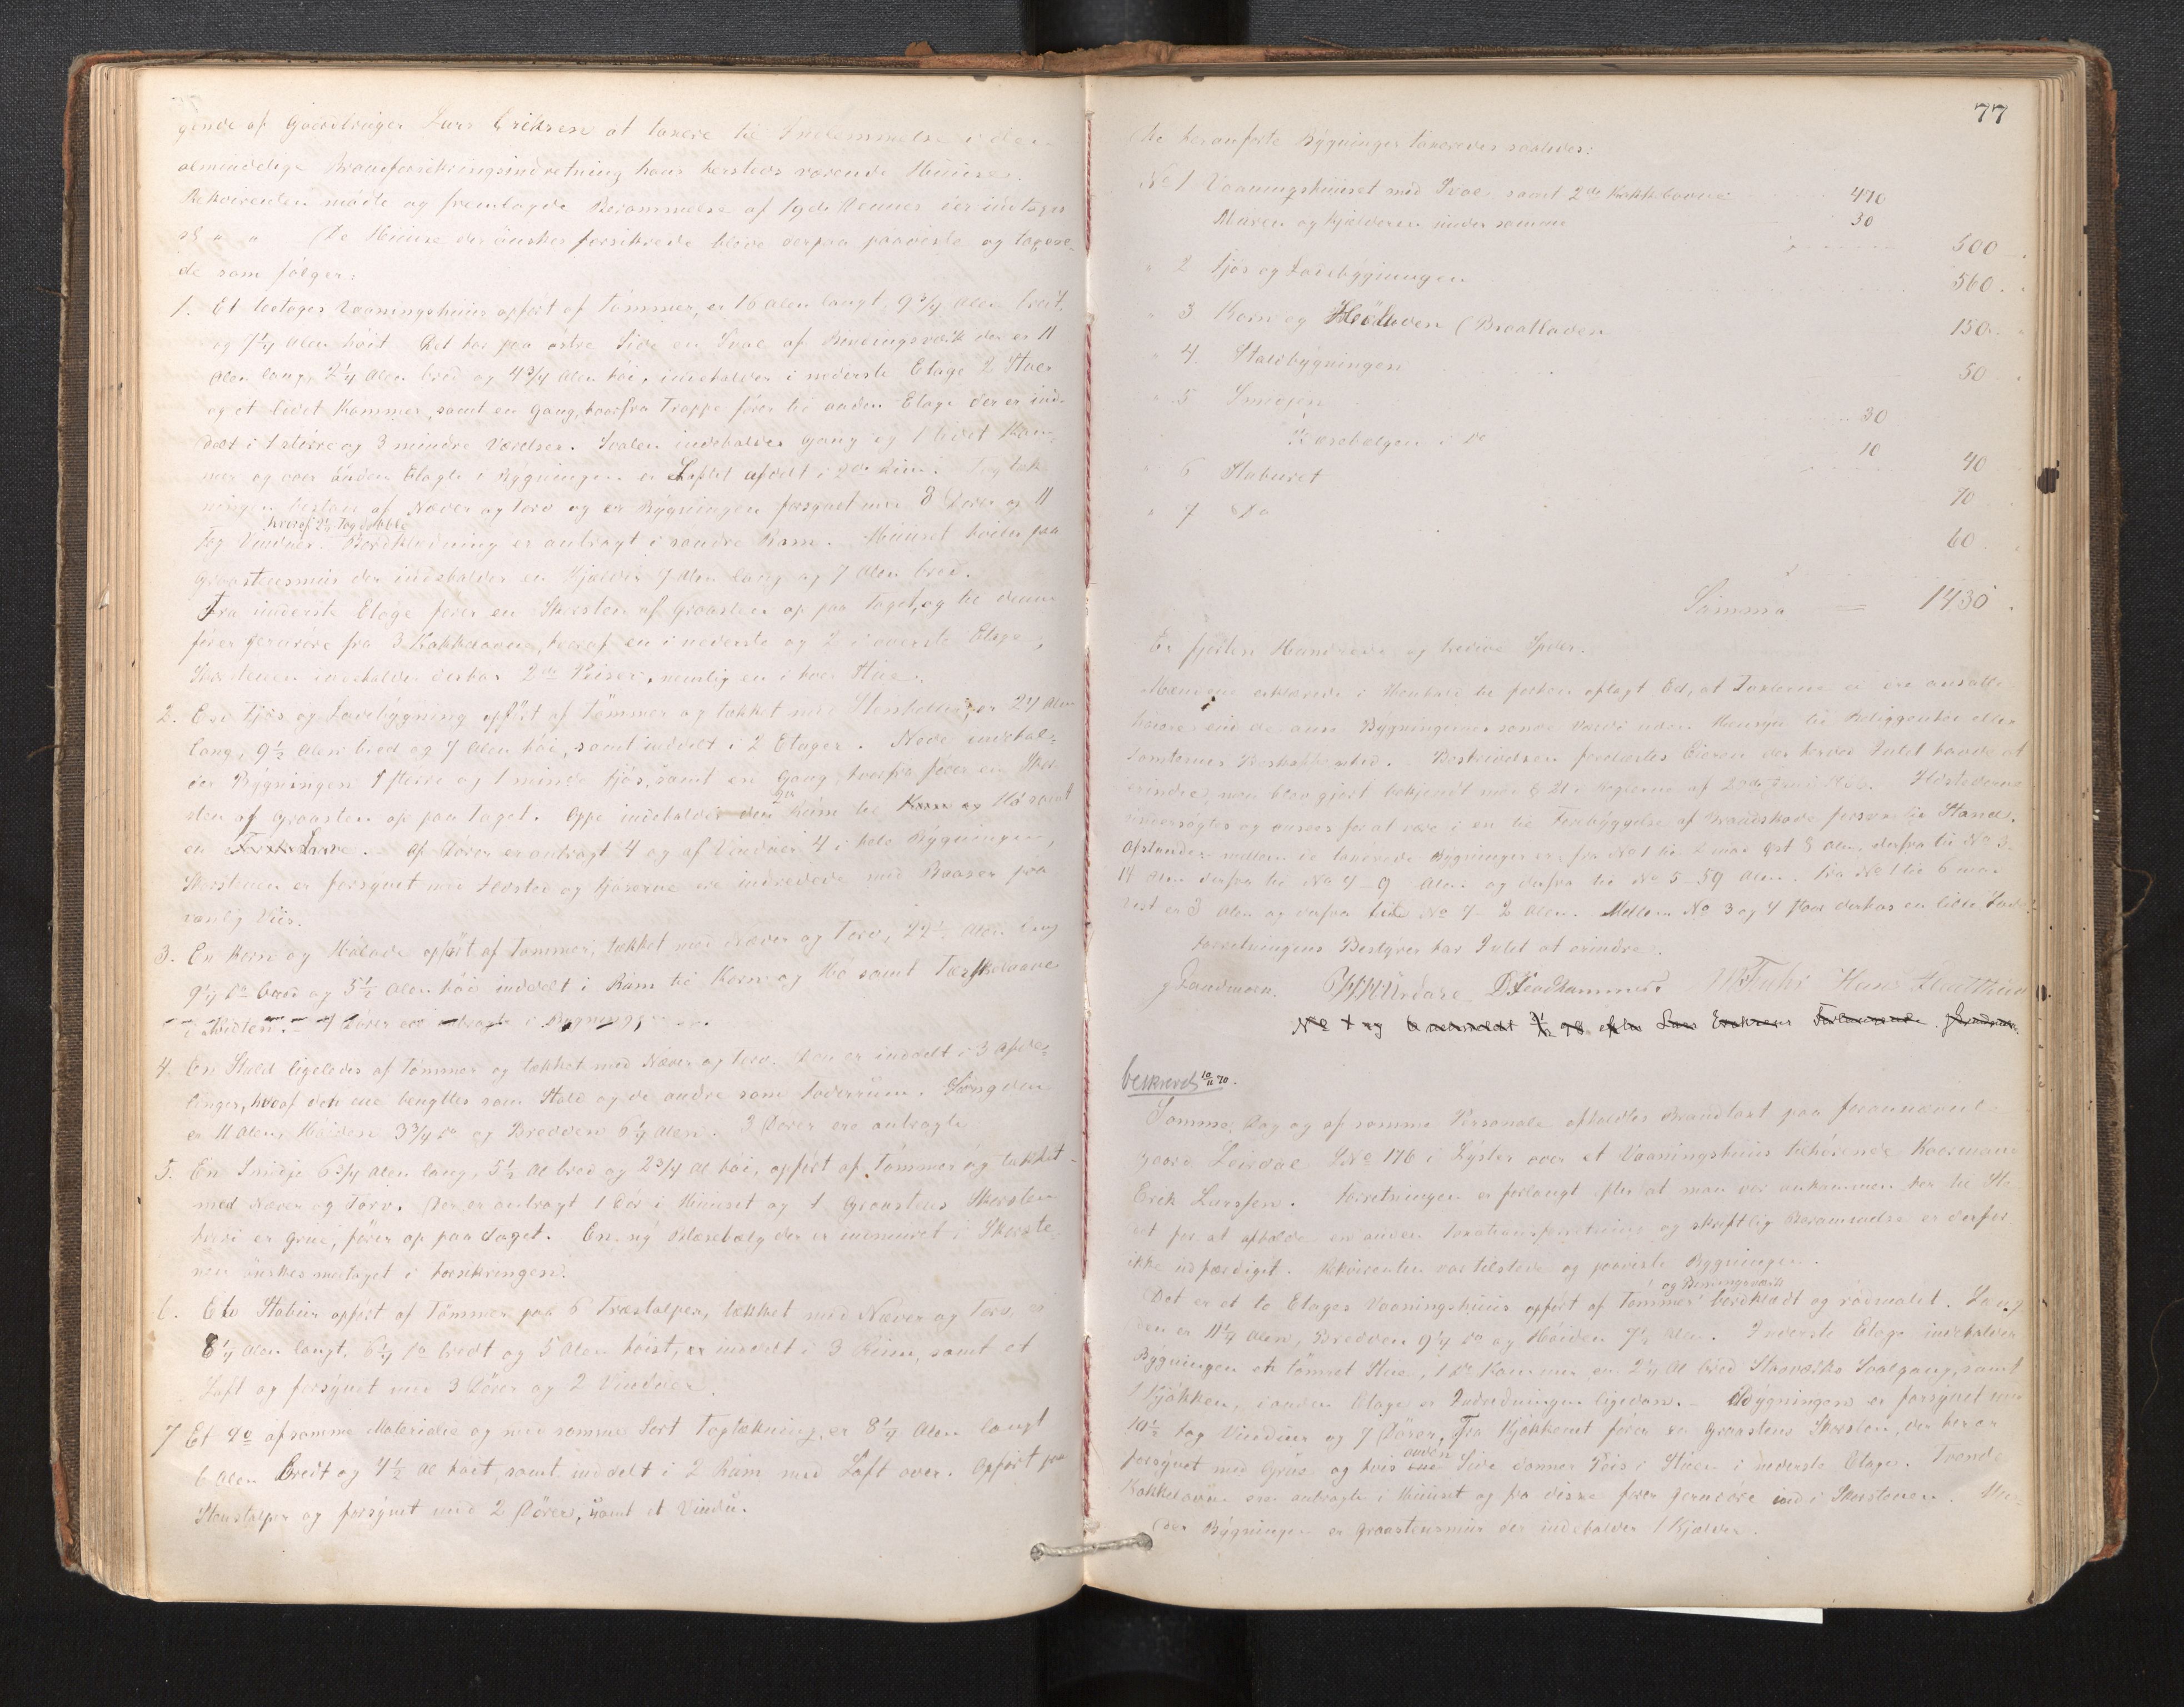 gende af Gaardbruger Lars Eriksen at taxere til Indlemmelse i den
almindelige Brandforsikringsindretning hans hersteds værende Huuse.
Rekvirenten mødte og fremlagde Berammelse af 19de Dennes der indtages
så " " De Huuse der ønskes forsikrede blive derpaa paaviste og taxere-
de som følger:
1. Et toetages Vaaningshuus opført af Tømmer, er 16 Alen langt, 9 3/4 Alen bredt,
og 7 1/4 Alen høit. Det har paa østre Side en Sval af Bindingsværk der er 11
Alen lang, 2 1/4 Alen bred og 4 3/4 Alen høi, indeholder i nederste Etage 2 Stuer
og et lidet Kammer, samt en Gang, hvorfra Trappe fører til anden Etage der er ind-
delt i 1 større og 3 mindre Værelser. Svalen indeholder Gang og 1 lidet Kam-
mer og over anden Etage i Bygningen er Loftet afdelt i 2de Rum. Tagtæk-
ningen bestaar af Næver og Torv og er Bygningen forsynet med 8 Dører og 11
hvoraf 2 1/2 Fag dobbelte
Fag Vinduer. Bordklædning er anbragt i søndre Ram. Huuset hviler paa
Graasteensmuur der indeholder en Kjælder 7 Alen lang og 7 Alen bred.
Fra underste Etage fører en Skorsten af Graasten op paa Taget, og til denne
fører Jernrøre fra 3 Kakkelovne, hvoraf en i nederste og 2 i øverste Etage;
Skorstenen indeholder derhos 2de Peiser, nemlig en i hver Stue.
2. En Fjøs og Ladebygning opført af Tømmer og tækket med Stenheller, er 24 Alen
lang, 9 1/2 Alen bred og 7 Alen høi, samt inddelt i 2 Etager. Nede indehol-
der Bygningen 1 større og 1 mindre Fjøs, samt en Gang, hvorfra fører en Skor-
sten af Graasten op paa Taget. Oppe indeholder den Rum til Korn og Hø samt
en . Af Dører er anbragt 4 og af Vinduer 4 i hele Bygningen,
Skorstenen er forsynet med Ildsted og Fjøserne ere indredede med Baaser paa
vanlig Viis.
3. En Korn og Hølade opført af Tømmer, tækket med Næver og Torv, 22 1/2 Alen lang
9 1/4 Do bred og 5 1/2 Alen høi inddelt i Rum til Korn og Hø samt Tærskelaave
i Midten. 4 Dører ere anbragte i Bygningen.
4. En Stald ligeledes af Tømmer og tækket med Næver og Torv. Den er inddelt i 3 Afde-
linger, hvoraf den ene benyttes som Stald og de andre som Foderrum. Længden
er 11 Alen, Høiden 3 3/4 Do og Bredden 6 1/4 Alen. 3 Dører ere anbragte
5. En Smidje 6 3/4 Alen lang, 5 1/2 Al bred og 2 3/4 Al høi, opført af Tømmer og tækket
med Næver og Torv. Der er anbragt 1 Dør i Huuset og 1 Graastens Skorsten
hvori er Grue, fører op paa Taget. En ny Blæsebælg der er indmuret i Skorste-
nen ønskes medtaget i Forsikringen.
6. Eto Stabur opført af Tømmer paa 6 Træstolper, tækket med Næver og Torv, er
8 1/4 Alen langt, 6 1/4 Do bredt og 5 Alen høist, er inddelt i 3 Rum, samt et
Loft og forsynet med 3 Dører og 2 Vinduer.
7 Et Do af samme Materialie og med samme Sort Tagtækning, er 8 1/4 Alen langt
6 Alen Bredt og 4 1/2 Al høit, samt inddelt i 2 Rum med Loft over. Opført paa
Stenstolper og forsynet med 2 Dører, samt et Vindu.
77
De heranførte Bygninger taxeredes saaledes:
No 1 Vaaningshuuset med Sval samt 2de Kakkelovne 470
Muren og Kjælderen under samme 30
500
" 2 Fjøs og Ladebygningen 560
" 3 Korn og Høladen (Braatladen 150
" 4 Staldbygningen 50
" 5 Smidjen 30
Blæsebælgen i Do 10
40
" 6 Staburet 70
" 7 Do 60
Summa = 1430
Er fjorten Hundrede og tredive Spdlr.
Mændene erklærede i Henhold til forhen aflagt Ed, at Taxterne ei ere ansatte
høiere end de anse Bygningernes sande Værdi uden Hensyn til Beliggenhed eller
Tomternes Beskaffenhed. Beskrivelsen forelæstes Eieren der herved Intet havde at
erindre, men blev gjort bekjendt med § 21 i Loven af 20de Juni . Ildstederne
undersøgtes og ansees for at være i en til Forebyggelse af Brandskade forsvarlig Stand.
Afstanden mellem de taxerede Bygninger er: fra No 1 til 2 mod Øst 8 Alen, derfra til No 3
14 Alen derfra til No 4 - 9 Alen og derfra til No 5 - 59 Alen. Fra No 1 til 6 mod
Vest er 3 Alen og derfra til No 7 - 2 Alen. Mellem No 3 og 4 staar derhos en liden Lade.
Forretningens Bestyrer har Intet at erindre.
J Sandmoen. D. Leadhammer. Hans
No 1 og 6 udmeldt 98 efter Lars Eriksens Forlangende.
beskrevet 10/11 70.
Samme Dag og af samme Personale afholdtes Brandtaxt paa forannævnte
Gaard Leirdal LNo 176 i Lyster over et Vaaningshuus tilhørende Kaarmand
Erik Larssen. Forretningen er forlangt efter at man var ankommen her til Ste-
det for at afholde en anden Taxationsforretning og skriftlig Berammelse er derfor
ikke udfærdiget. Rekvirenten var tilstede og paaviste Bygningen.
og Bindingsværk
Det er et to Etages Vaaningshuus opført af Tømmer bordklædt og rødmalet. Læng-
den er 11 1/4 Alen, Bredden 9 1/4 Do og Høiden 7 1/4 Alen. I nederste Etage indeholder
Bygningen et tømret Stue, 1 do Kammer en 2 1/4 Al bred Svalgang, samt
1 Kjøkken, i anden Etage er Indredningen ligedan. Bygningen er forsynet med
10 1/2 Fag Vinduer og 7 Dører, Fra Kjøkkenet fører en Graastens Skorsten, der her er
anden
forsynet med Grue og hvis ene Side danner Peis i Stuen i nederste Etage. Tvende
Kakkelovne ere anbragte i Huuset og fra disse fører Jernrøre ind i Skorstenen. Un-
der Bygningen er Graastensmuur der indeholder 1 Kjælder.